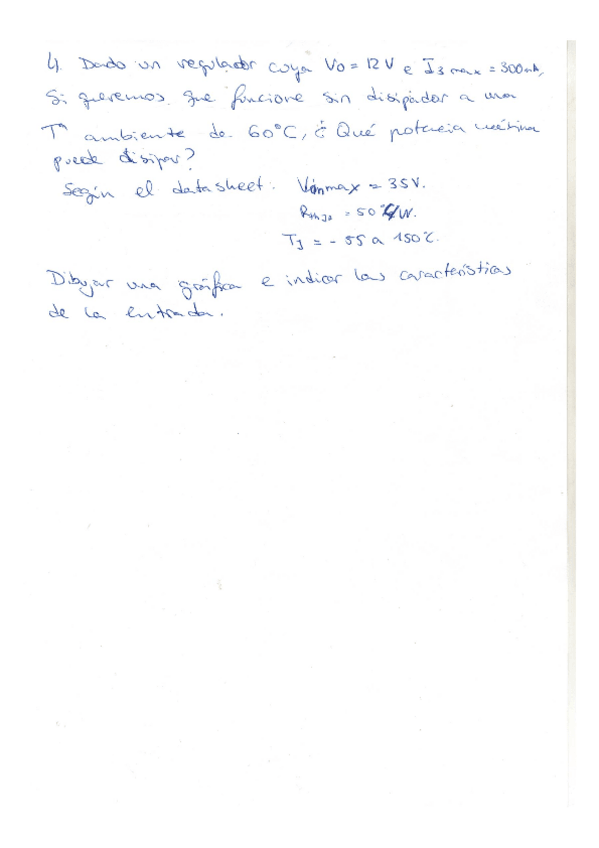 4. Dado un regulador cuya Vo = 12 V e I3 max = 300mA,
Si queremos que funcione sin disipador a una
Tª ambiente de 60°C, ¿Qué potencia máxima
puede disipar?
Según el datasheet: Vinmax = 35V.
Rthja = 50 °C/W.
TJ = - 55 a 150°C.
Dibujar una gráfica e indicar las características
de la entrada.